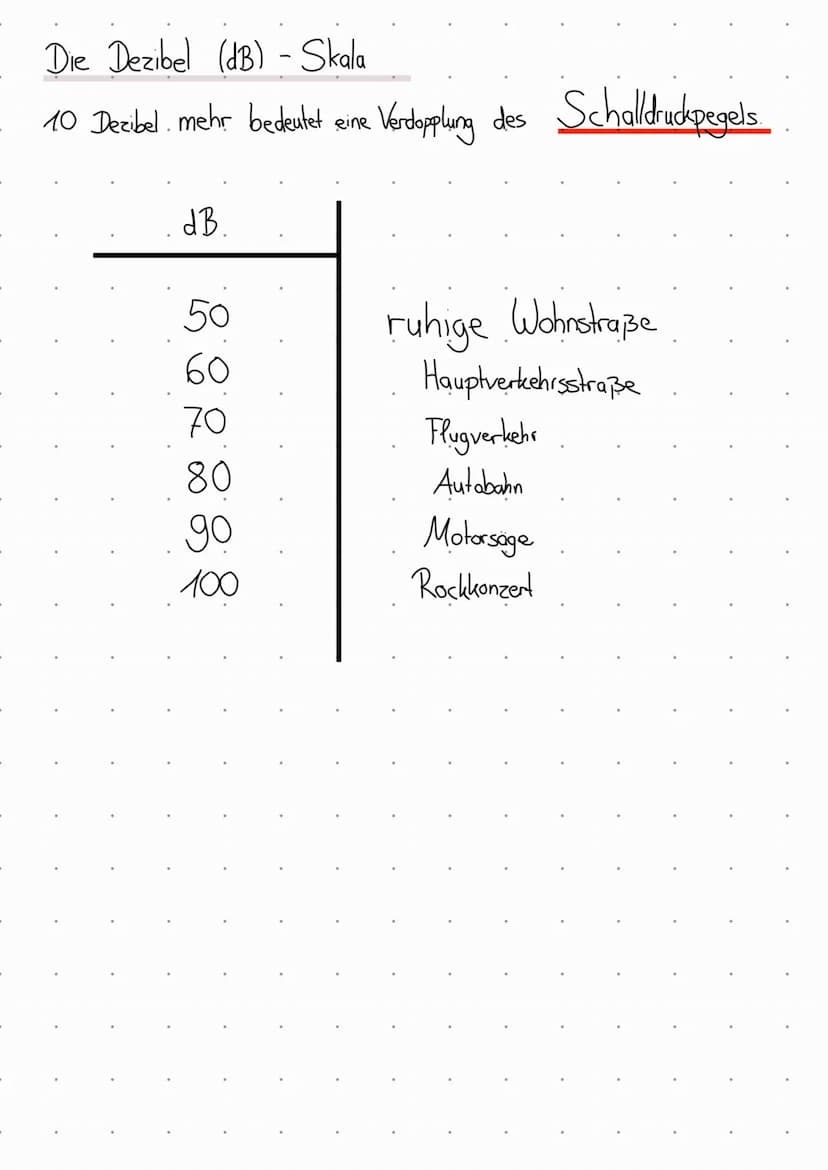 Die Dezibel (dB) - Skala
10 Dezibel mehr bedeutet eine Verdopplung des Schalldruckpegels.
dB
50 ruhige Wohnstraße
60 Hauptverkehrsstraße
70 Flugverkehr
80 Autobahn
90 Motorsäge
100 Rockkonzert